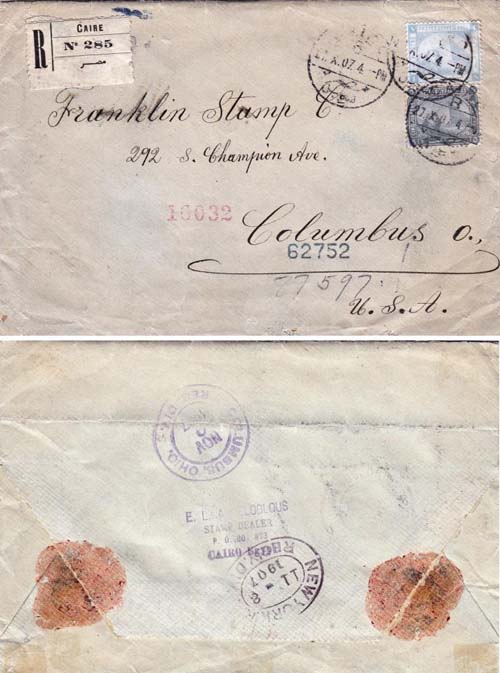 CAIRE
R
Nº 285
X.07.4 -PM
X.07.4 -PM
Franklin Stamp C
292 S. Champion Ave.
16032
Columbus O.,
62752
77597
U. S. A.
COLUMBUS, OHIO.
REG. DIV.
NOV
E.
STAMP DEALER
P. O.
CAIRO
NEW YORK
REG.
11 - 8
1907